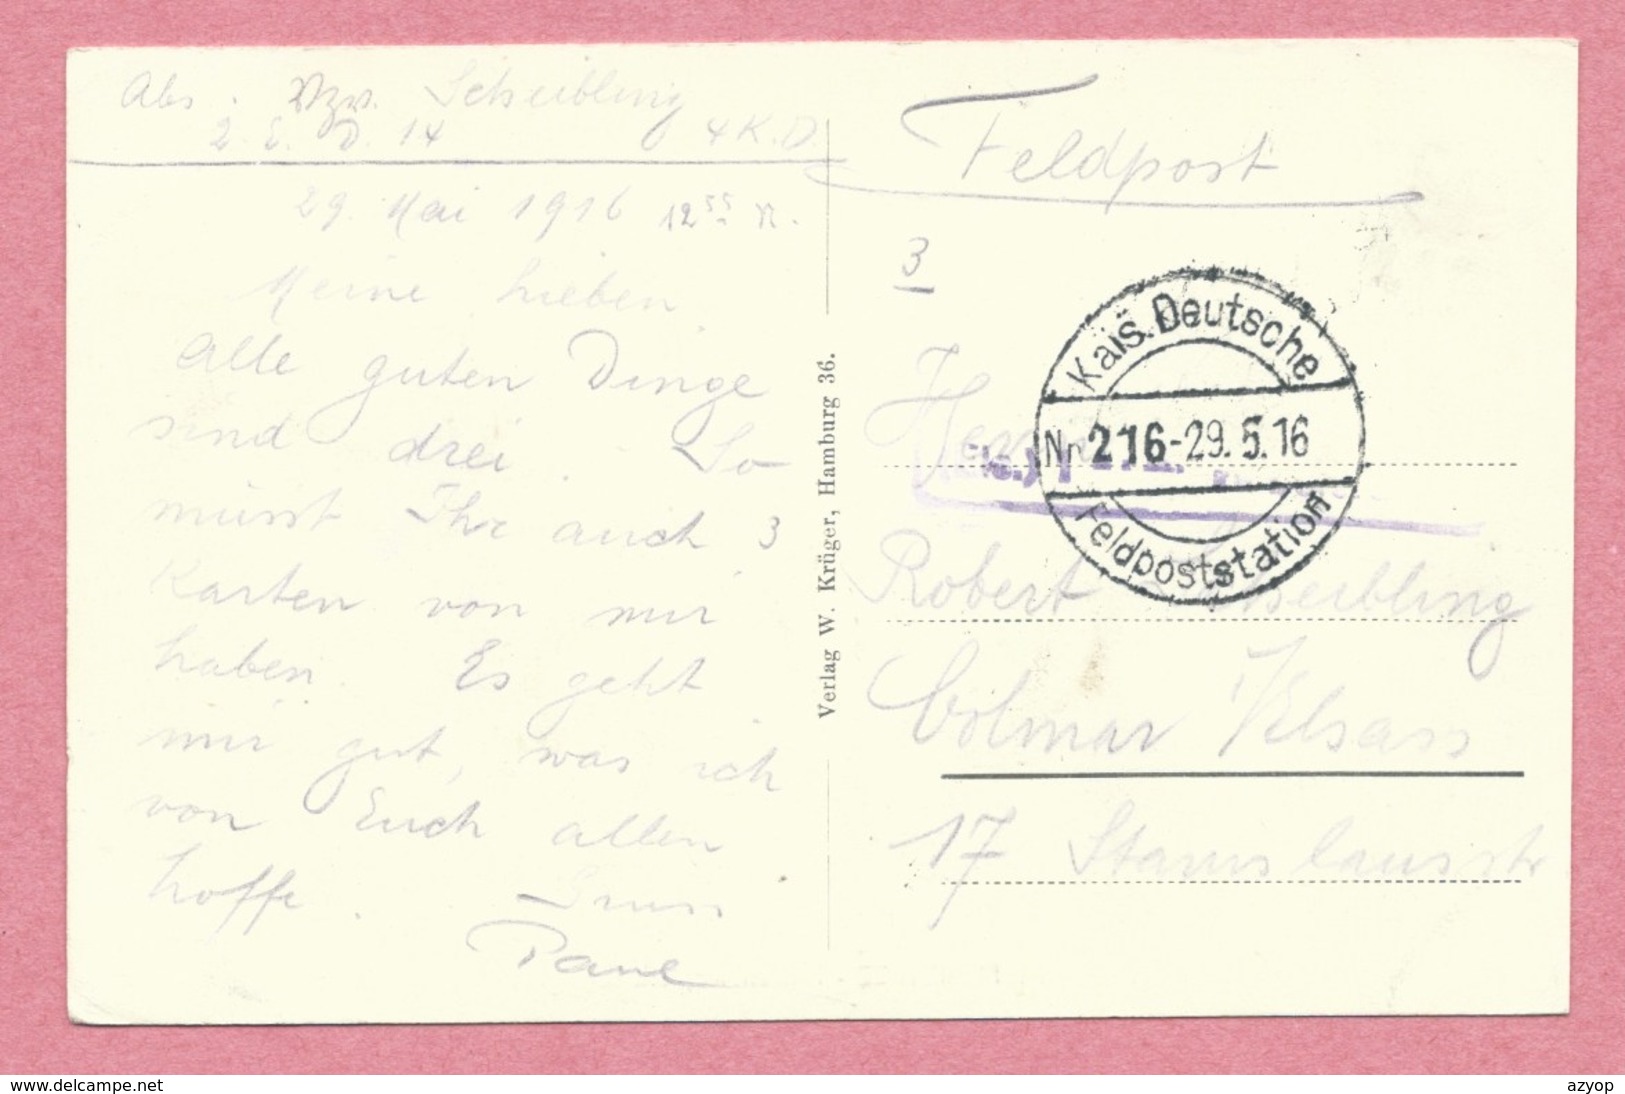 Abs. Vzw. Scheibling
2. E. D. 14 4 K.D.
29. Mai 1916 12 55 N.
Meine Lieben
Alle guten Dinge
sind drei. So
müsst Ihr auch 3
Karten von mir
haben. Es geht
mir gut, was ich
von Euch allen
hoffe. Gruss
Paul
Verlag W. Krüger, Hamburg 36.
Feldpost
3
Kais. Deutsche
Nr. 216 -29.5.16
Feldpoststation
Herrn
Robert Scheibling
Colmar i/Elsass
17 Stanislausstr
www.delcampe.net
azyop